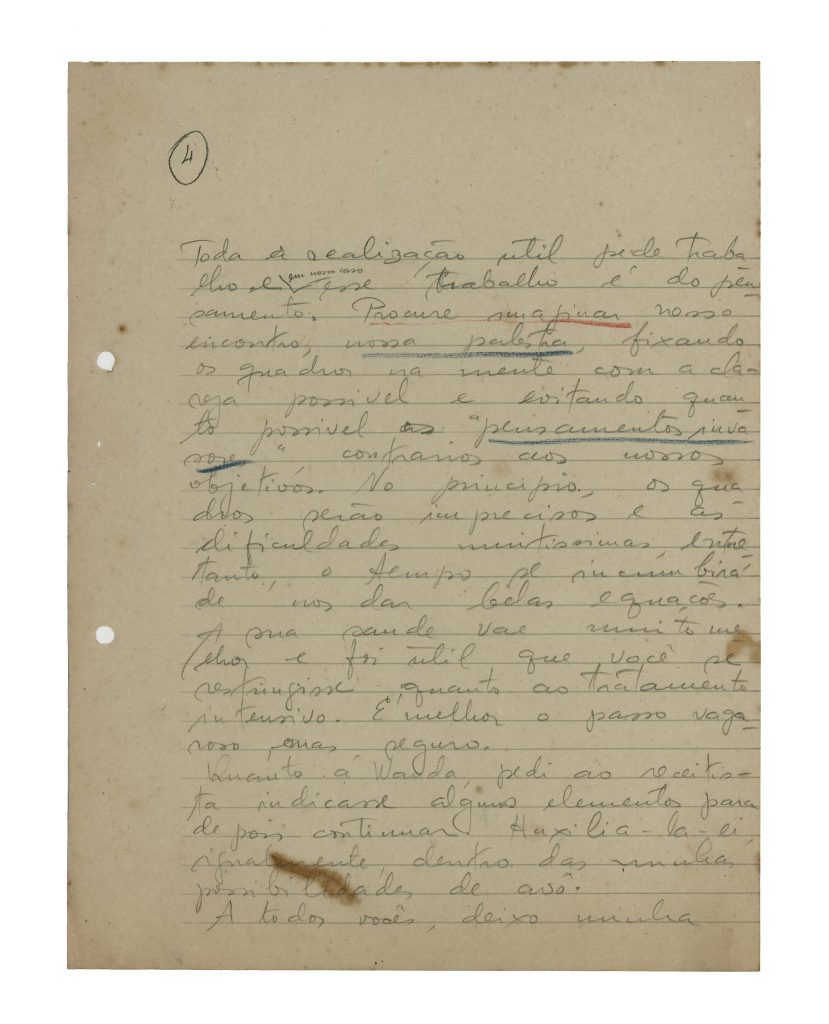 4
Toda a realização util pede traba
lho e em nosso caso esse trabalho é do pen
samento. Procure imaginar nosso
encontro, nossa palestra, fixando
os quadros na mente com a cla-
reza possivel e evitando quan
to possivel os "pensamentos inva
sores" contrarios aos nossos
objetivos. No principio, os qua
dros serão imprecisos e as
dificuldades muitissimas, entre
tanto, o tempo se incumbirá
de nos dar belas equações.
A sua saude vae muito me
lhor e foi util que você se
restringisse, quanto ao tratamento
intensivo. É melhor o passo vaga
roso, mas seguro.
Quanto á Wanda, pedi ao receitis-
ta indicasse alguns elementos para
depois continuar. Auxilia-la-ei,
igualmente, dentro das minhas
possibilidades de avô.
A todos vocês, deixo minha